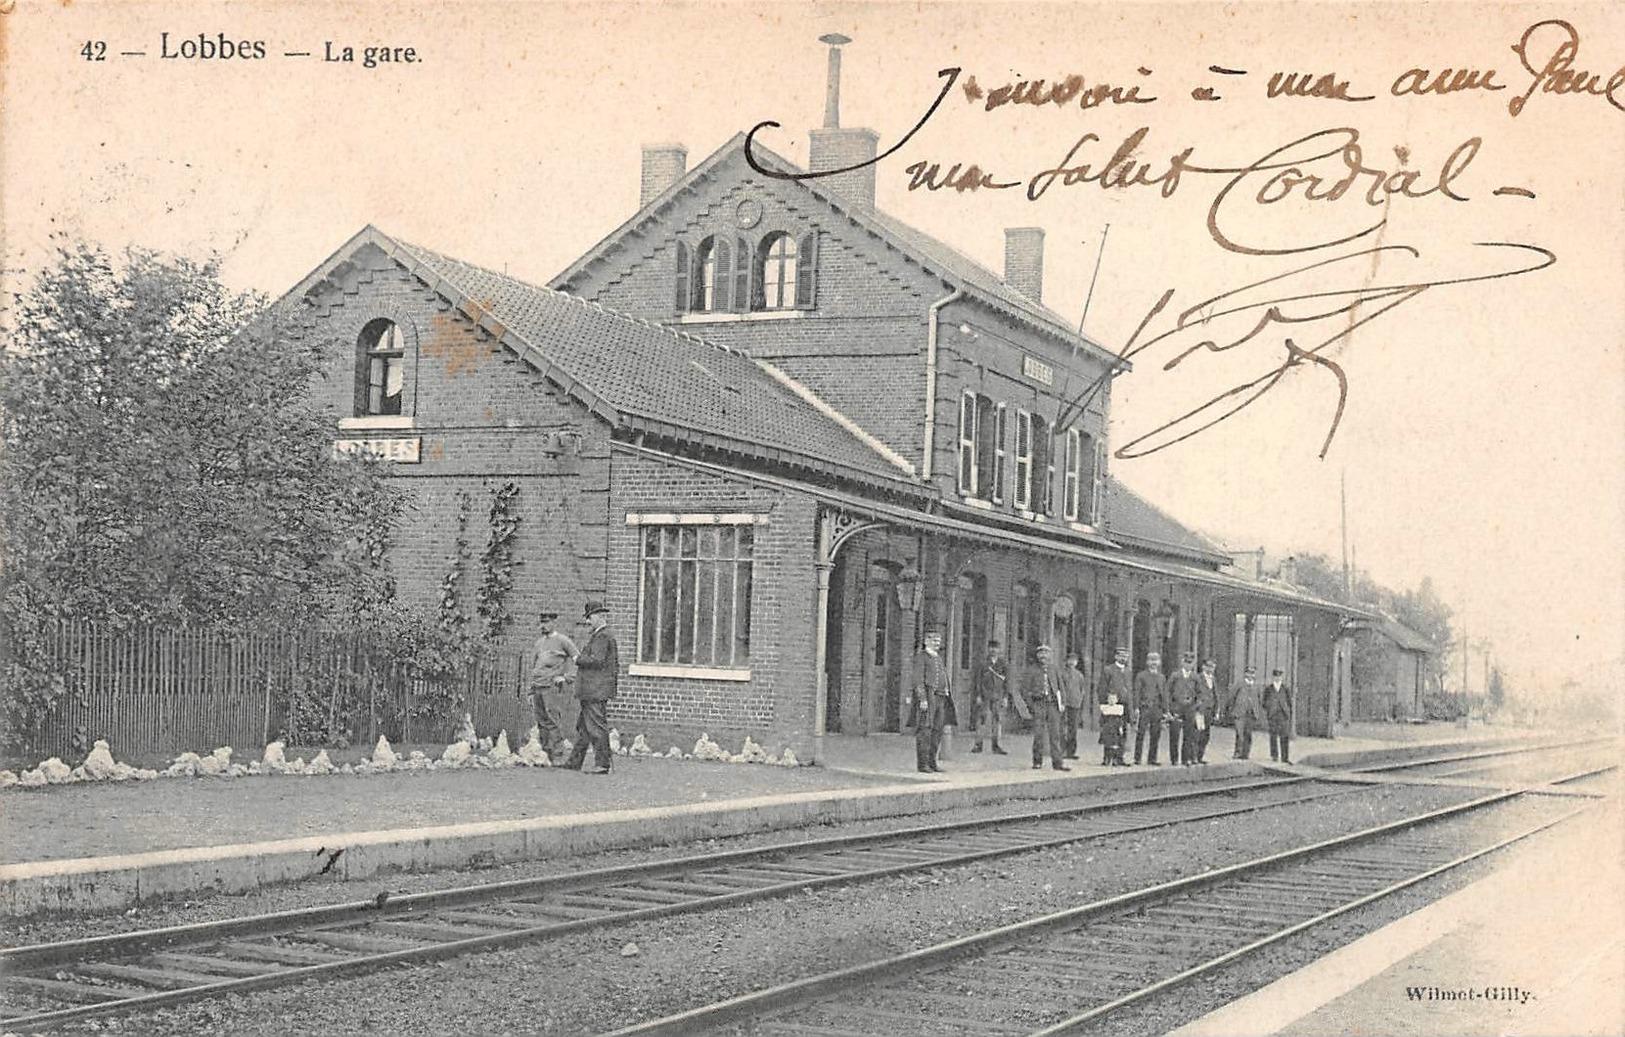 42 — Lobbes — La gare.
J'envoie à mon ami Paul
mon Salut Cordial -
LOBBES
LOBBES
Wilmet-Gilly.